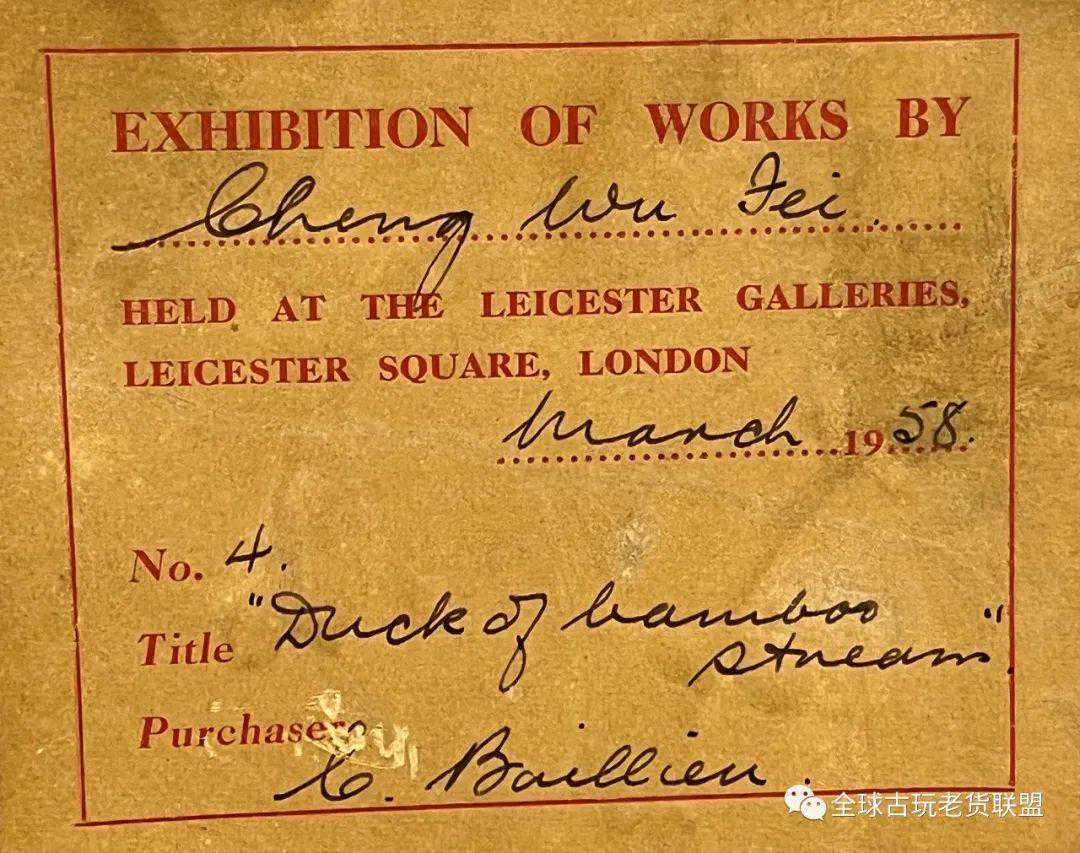 EXHIBITION OF WORKS BY
Cheng Wu Fei.
HELD AT THE LEICESTER GALLERIES,
LEICESTER SQUARE, LONDON
March 1958.
No. 4.
Title "Duck of bamboo
stream".
Purchaser
C. Baillieu.
全球古玩老货联盟